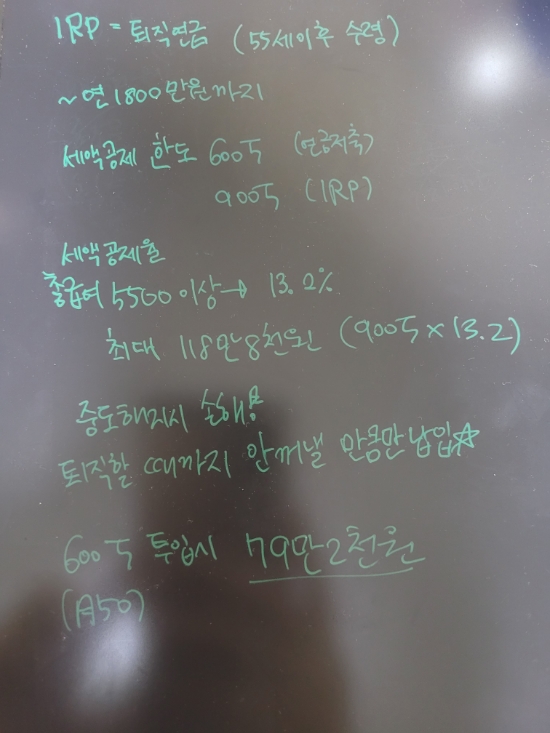 IRP = 퇴직연금 (55세이후 수령)
~연 1800만원까지
세액공제 한도 600万 (연금저축)
900万 (IRP)
세액공제율
총급여 5500이상→ 13.2%
최대 118만8천원 (900万×13.2)
중도해지시 손해
퇴직할 때까지 안꺼낼 만큼만 납입☆
600万 투입시 79만2천원
(月50)